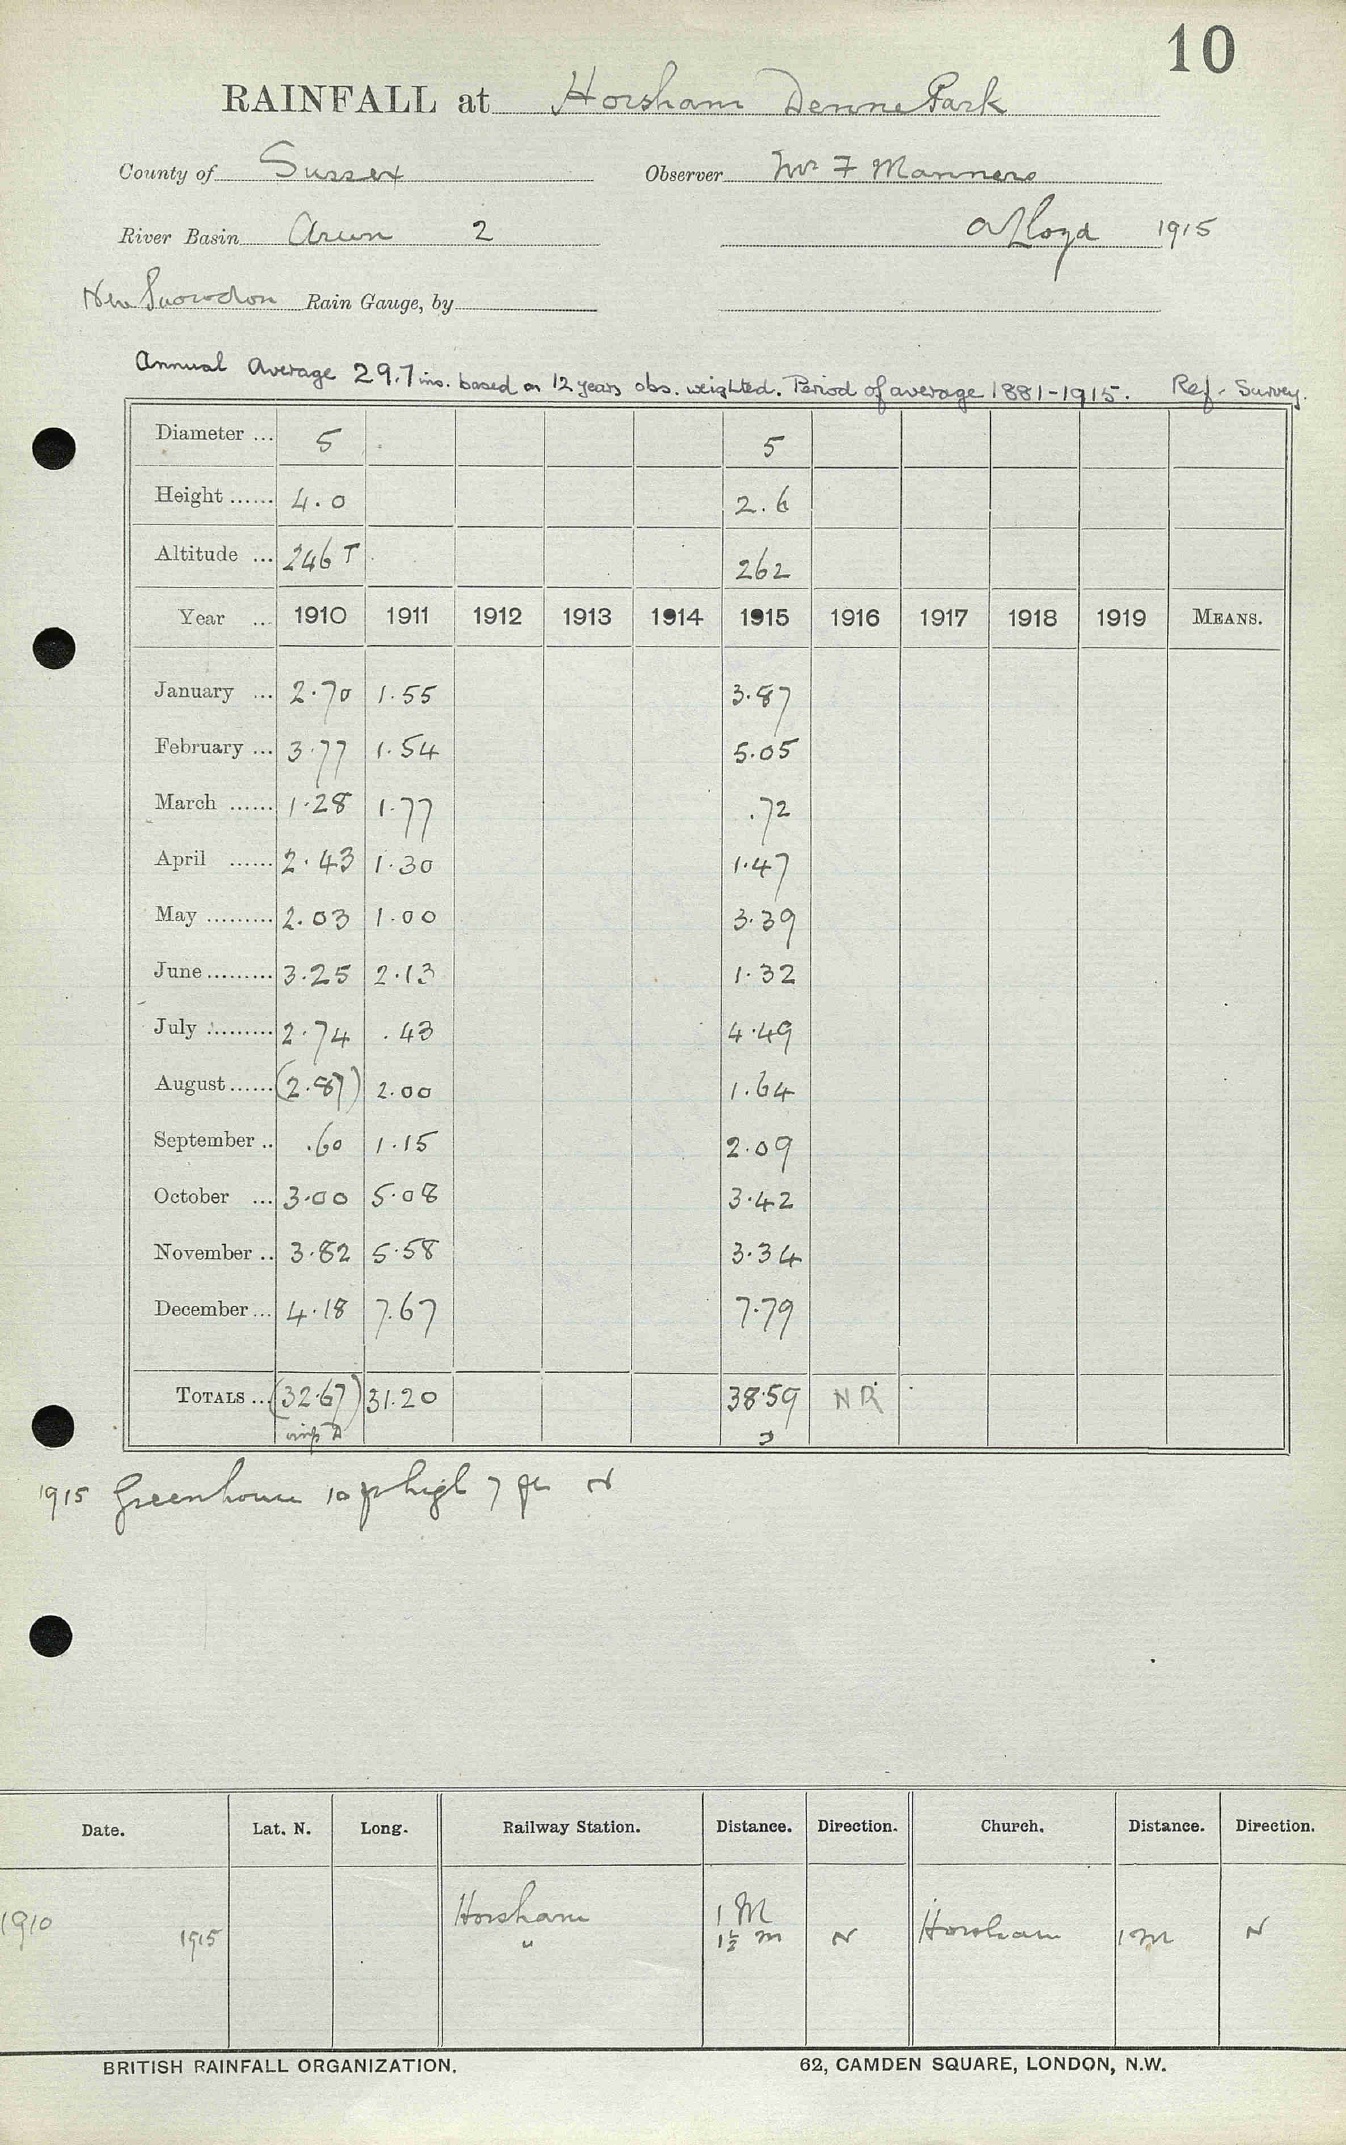 10
RAINFALL at Horsham Denne Park
County of Sussex Observer Mr F Manners
River Basin Arun 2 A Lloyd 1915
New Snowdon Rain Gauge, by
Annual Average 29.7 ins. based on 12 years obs. weighted. Period of average 1881-1915. Ref. Survey.
Diameter ... 5 5
Height ...... 4.0 2.6
Altitude ... 246 T 262
Year ... 1910 1911 1912 1913 1914 1915 1916 1917 1918 1919 MEANS.
January ... 2.70 1.55 3.87
February ... 3.77 1.54 5.05
March ...... 1.28 1.77 .72
April ...... 2.43 1.30 1.47
May ......... 2.03 1.00 3.39
June ......... 3.25 2.13 1.32
July ......... 2.74 .43 4.49
August ...... (2.87) 2.00 1.64
September .. .60 1.15 2.09
October ... 3.00 5.08 3.42
November .. 3.82 5.58 3.34
December ... 4.18 7.67 7.79
TOTALS ... (32.67) 31.20 38.59 NR
1915 Greenhouse 10 ft high 7 ft N
Date. Lat. N. Long. Railway Station. Distance. Direction. Church. Distance. Direction.
1910 Horsham 1 M
1915 " 1½ m N Horsham 1 m N
BRITISH RAINFALL ORGANIZATION. 62, CAMDEN SQUARE, LONDON, N.W.